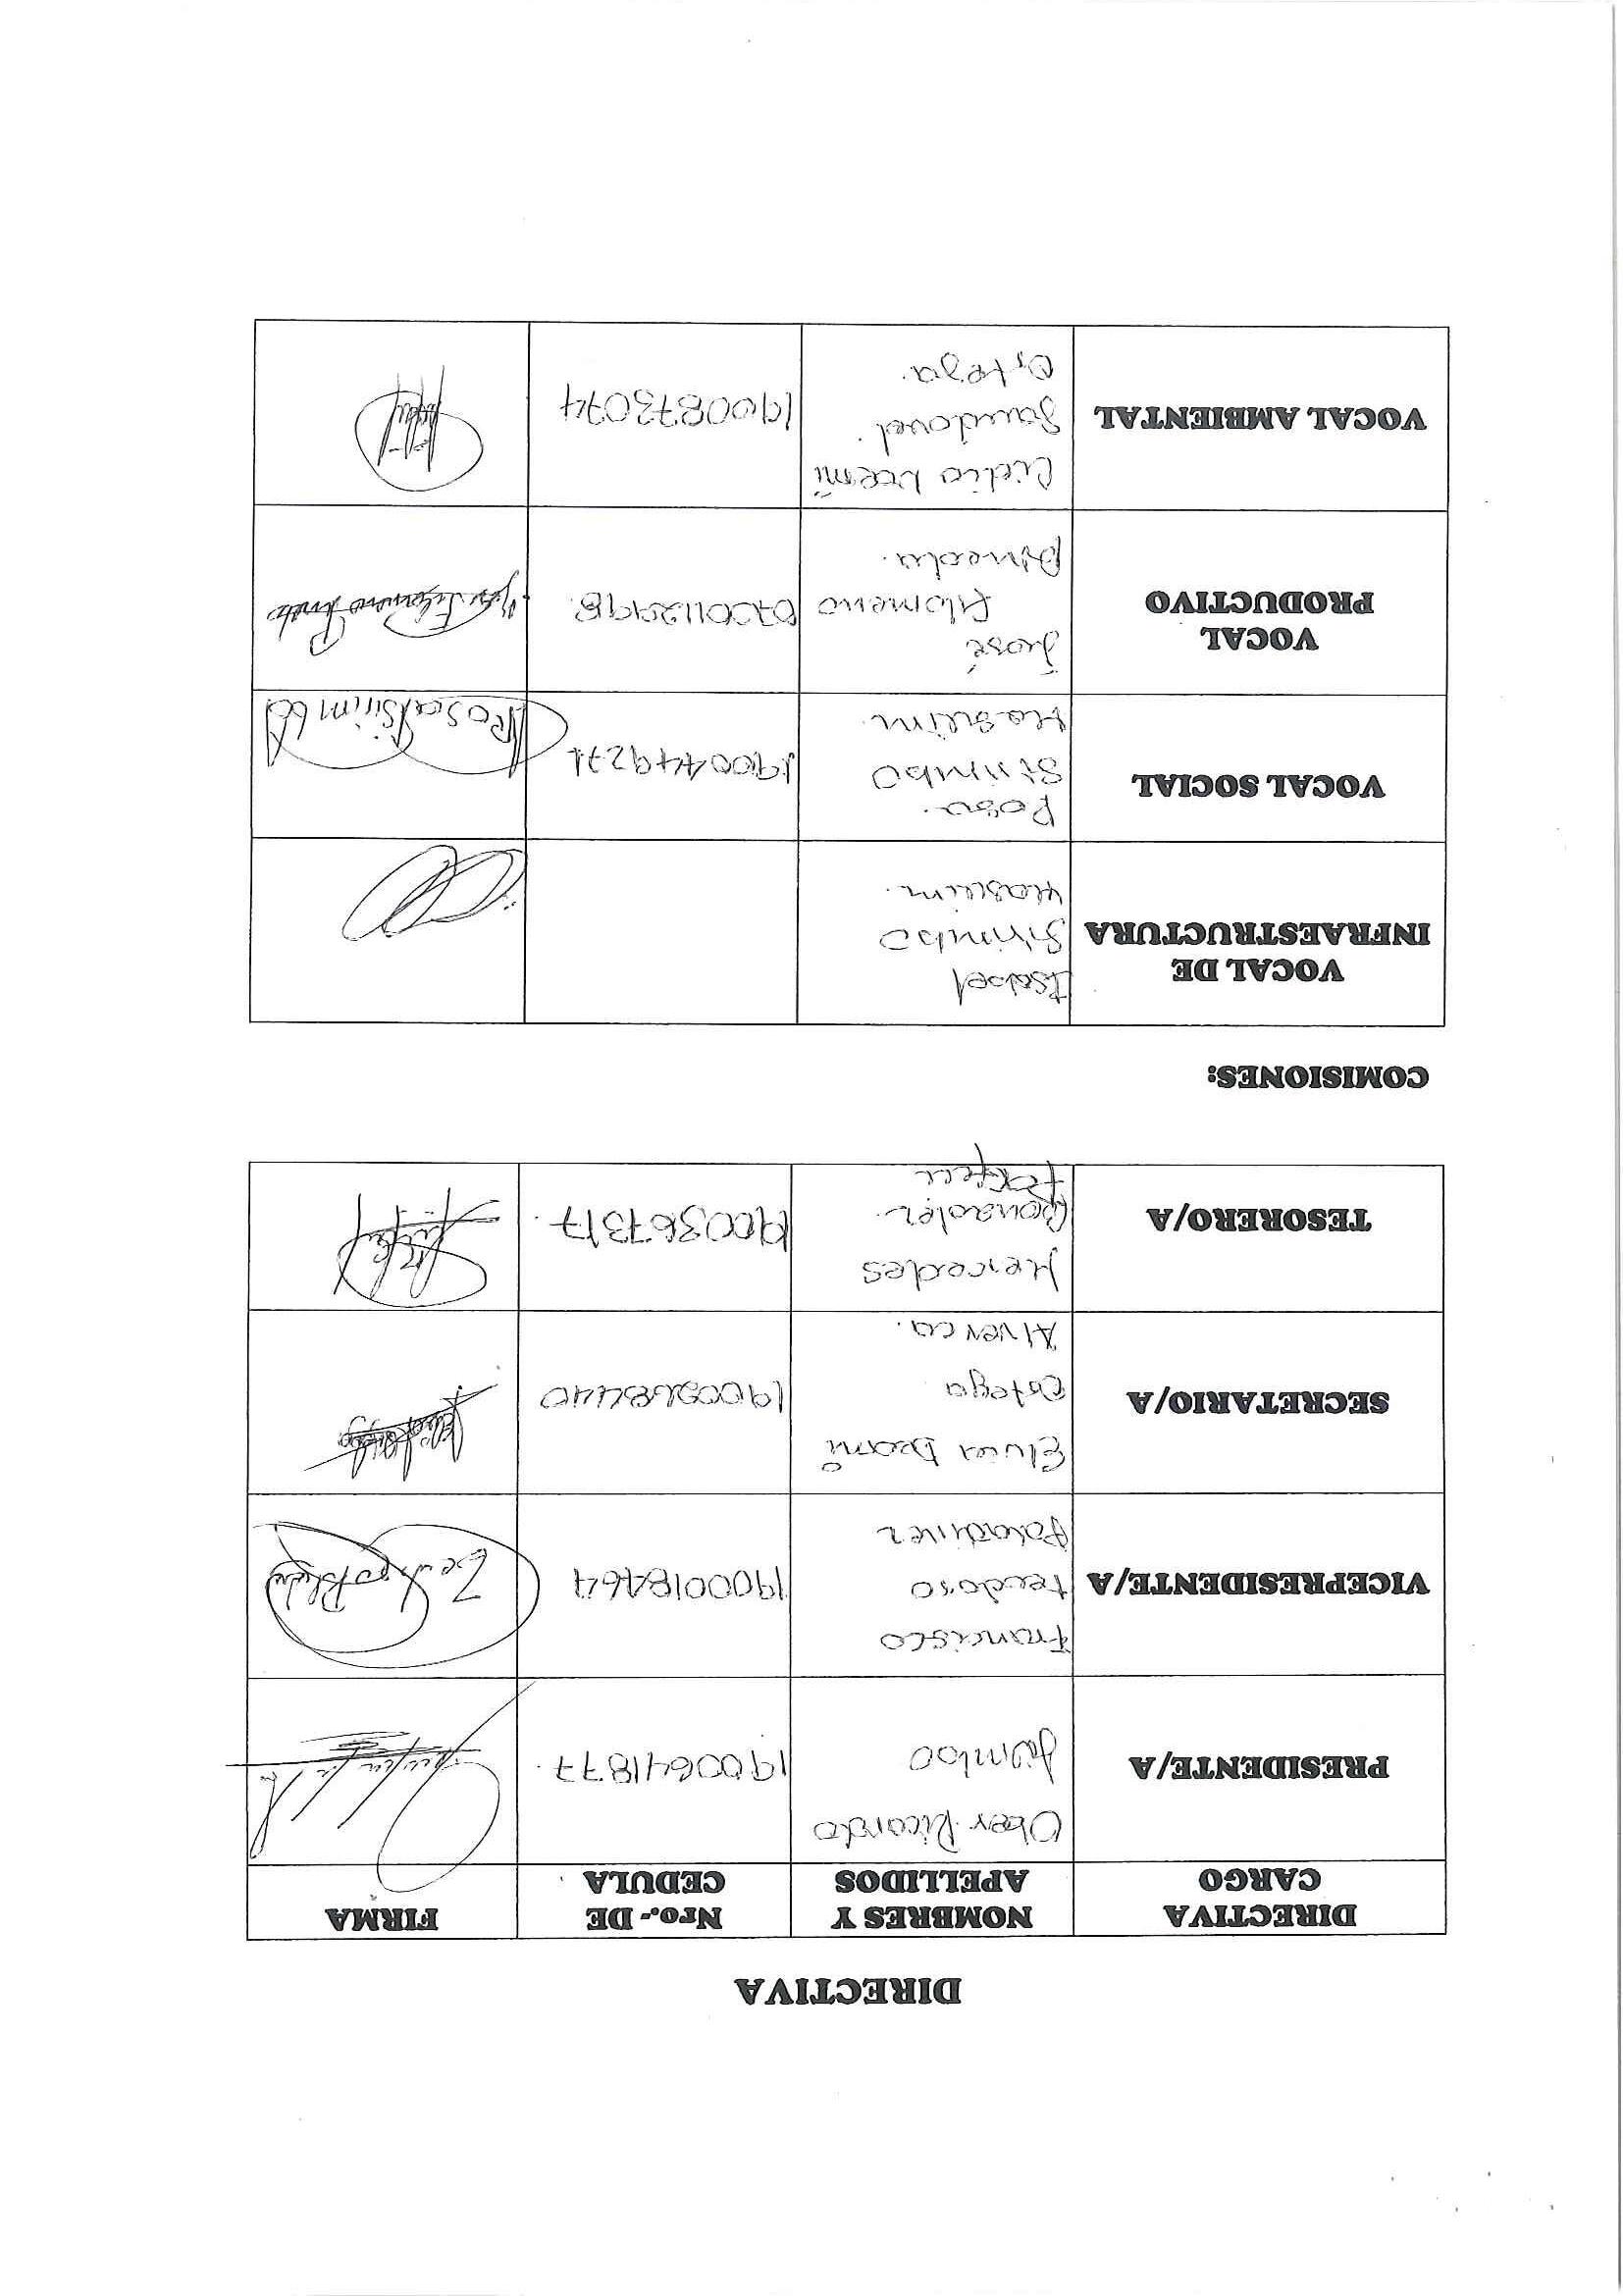 DIRECTIVA
DIRECTIVA CARGO NOMBRES Y APELLIDOS Nro.- DE CEDULA FIRMA
PRESIDENTE/A Ober Ricardo Jimbo 1900641877.
VICEPRESIDENTE/A Francisco teodoro 1900018464
SECRETARIO/A Elvia Noemi Ortega Alverca. 1900268440
TESORERO/A Mercedes Gonzalez. 1900367317.
COMISIONES:
VOCAL DE INFRAESTRUCTURA Isabel Sirimbo
VOCAL SOCIAL Rosa. Sirimbo 1900449271 Rosa Sirimbo
VOCAL PRODUCTIVO José filomeno Pineda.
VOCAL AMBIENTAL Lidia Noemi Sandoval. Ortega. 1900873074